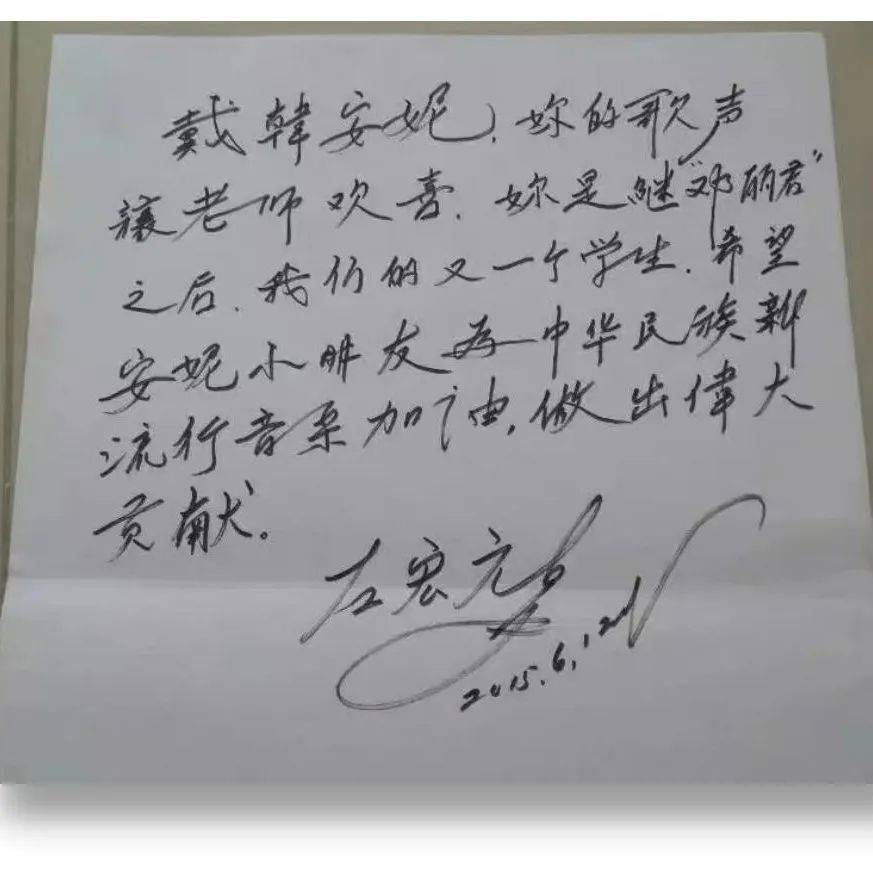 戴韓安妮，妳的歌声
讓老师欢喜，妳是継“邓丽君”
之后，我们的又一个学生，希望
安妮小朋友为中华民族新
流行音乐加油，做出偉大
贡献。
左宏元
2015.6.1